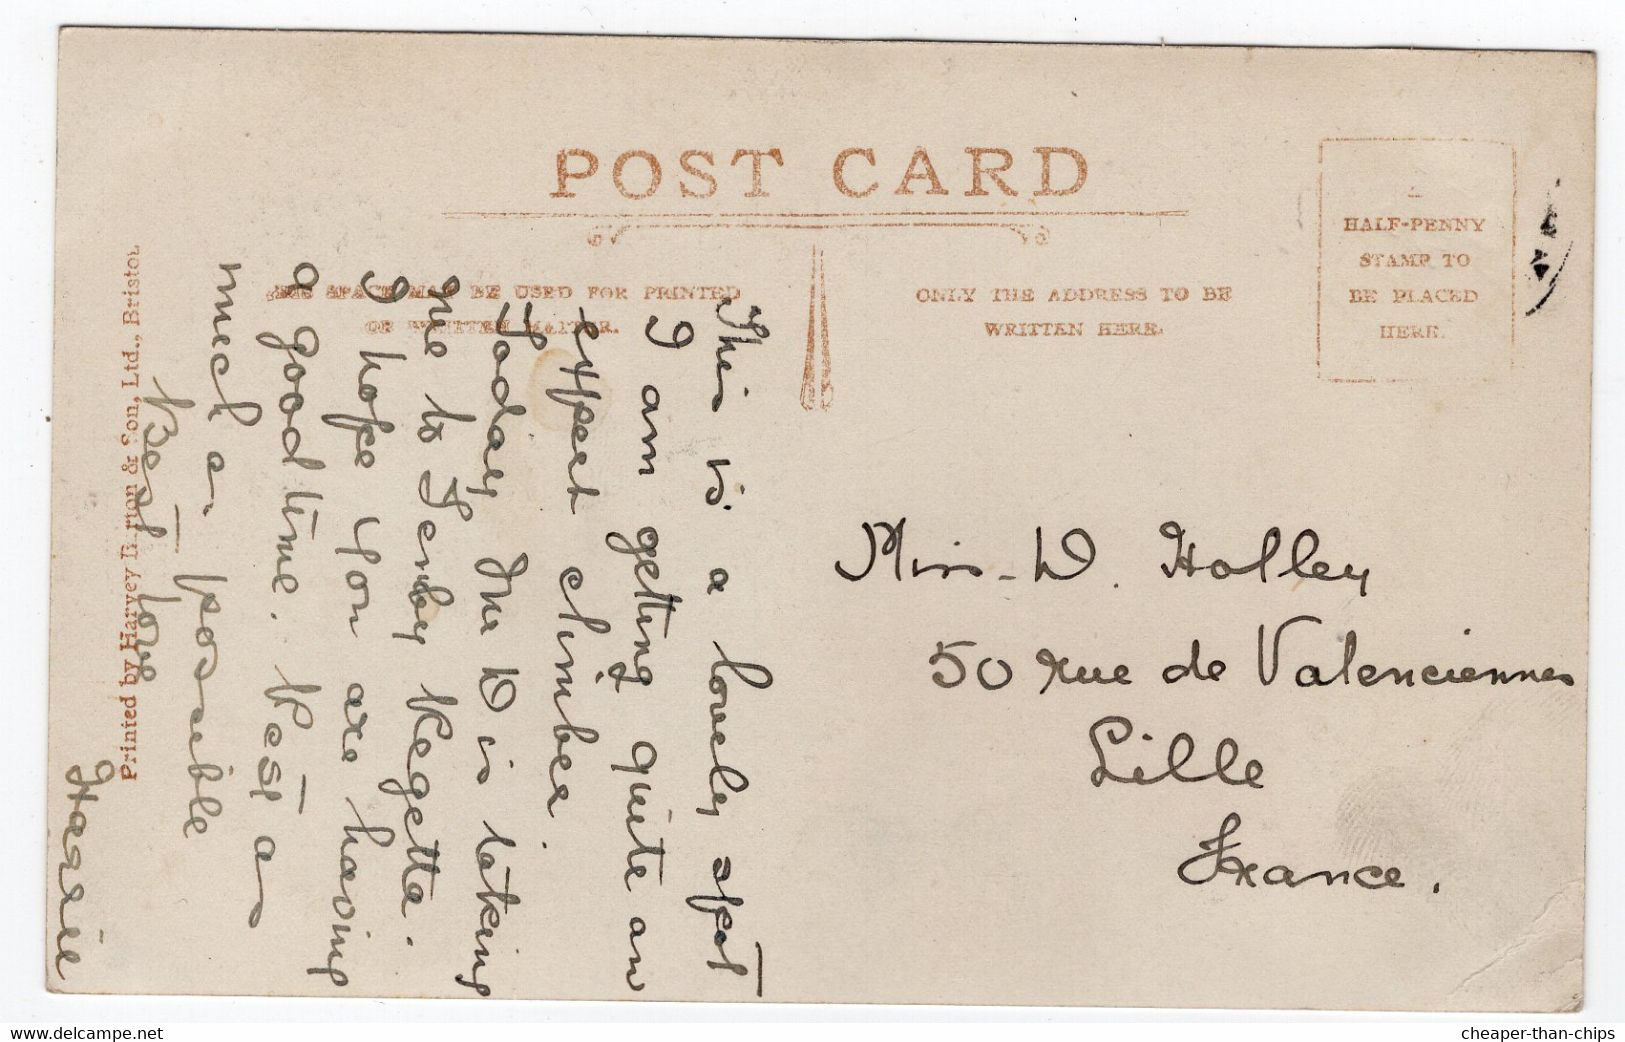 POST CARD
THIS SPACE MAY BE USED FOR PRINTED
OR WRITTEN MATTER.
ONLY THE ADDRESS TO BE
WRITTEN HERE.
A
HALF-PENNY
STAMP TO
BE PLACED
HERE.
This is a lovely spot
I am getting quite an
expert climber
Today Mr D is taking
me to Tenby Regetta.
I hope you are having
a good time. Rest as
much as possible
Best love
Harrie
Miss D. Holley
50 rue de Valenciennes
Lille
France.
Printed by Harvey Barton & Son, Ltd., Bristol.
cheaper-than-chips
delcampe.net